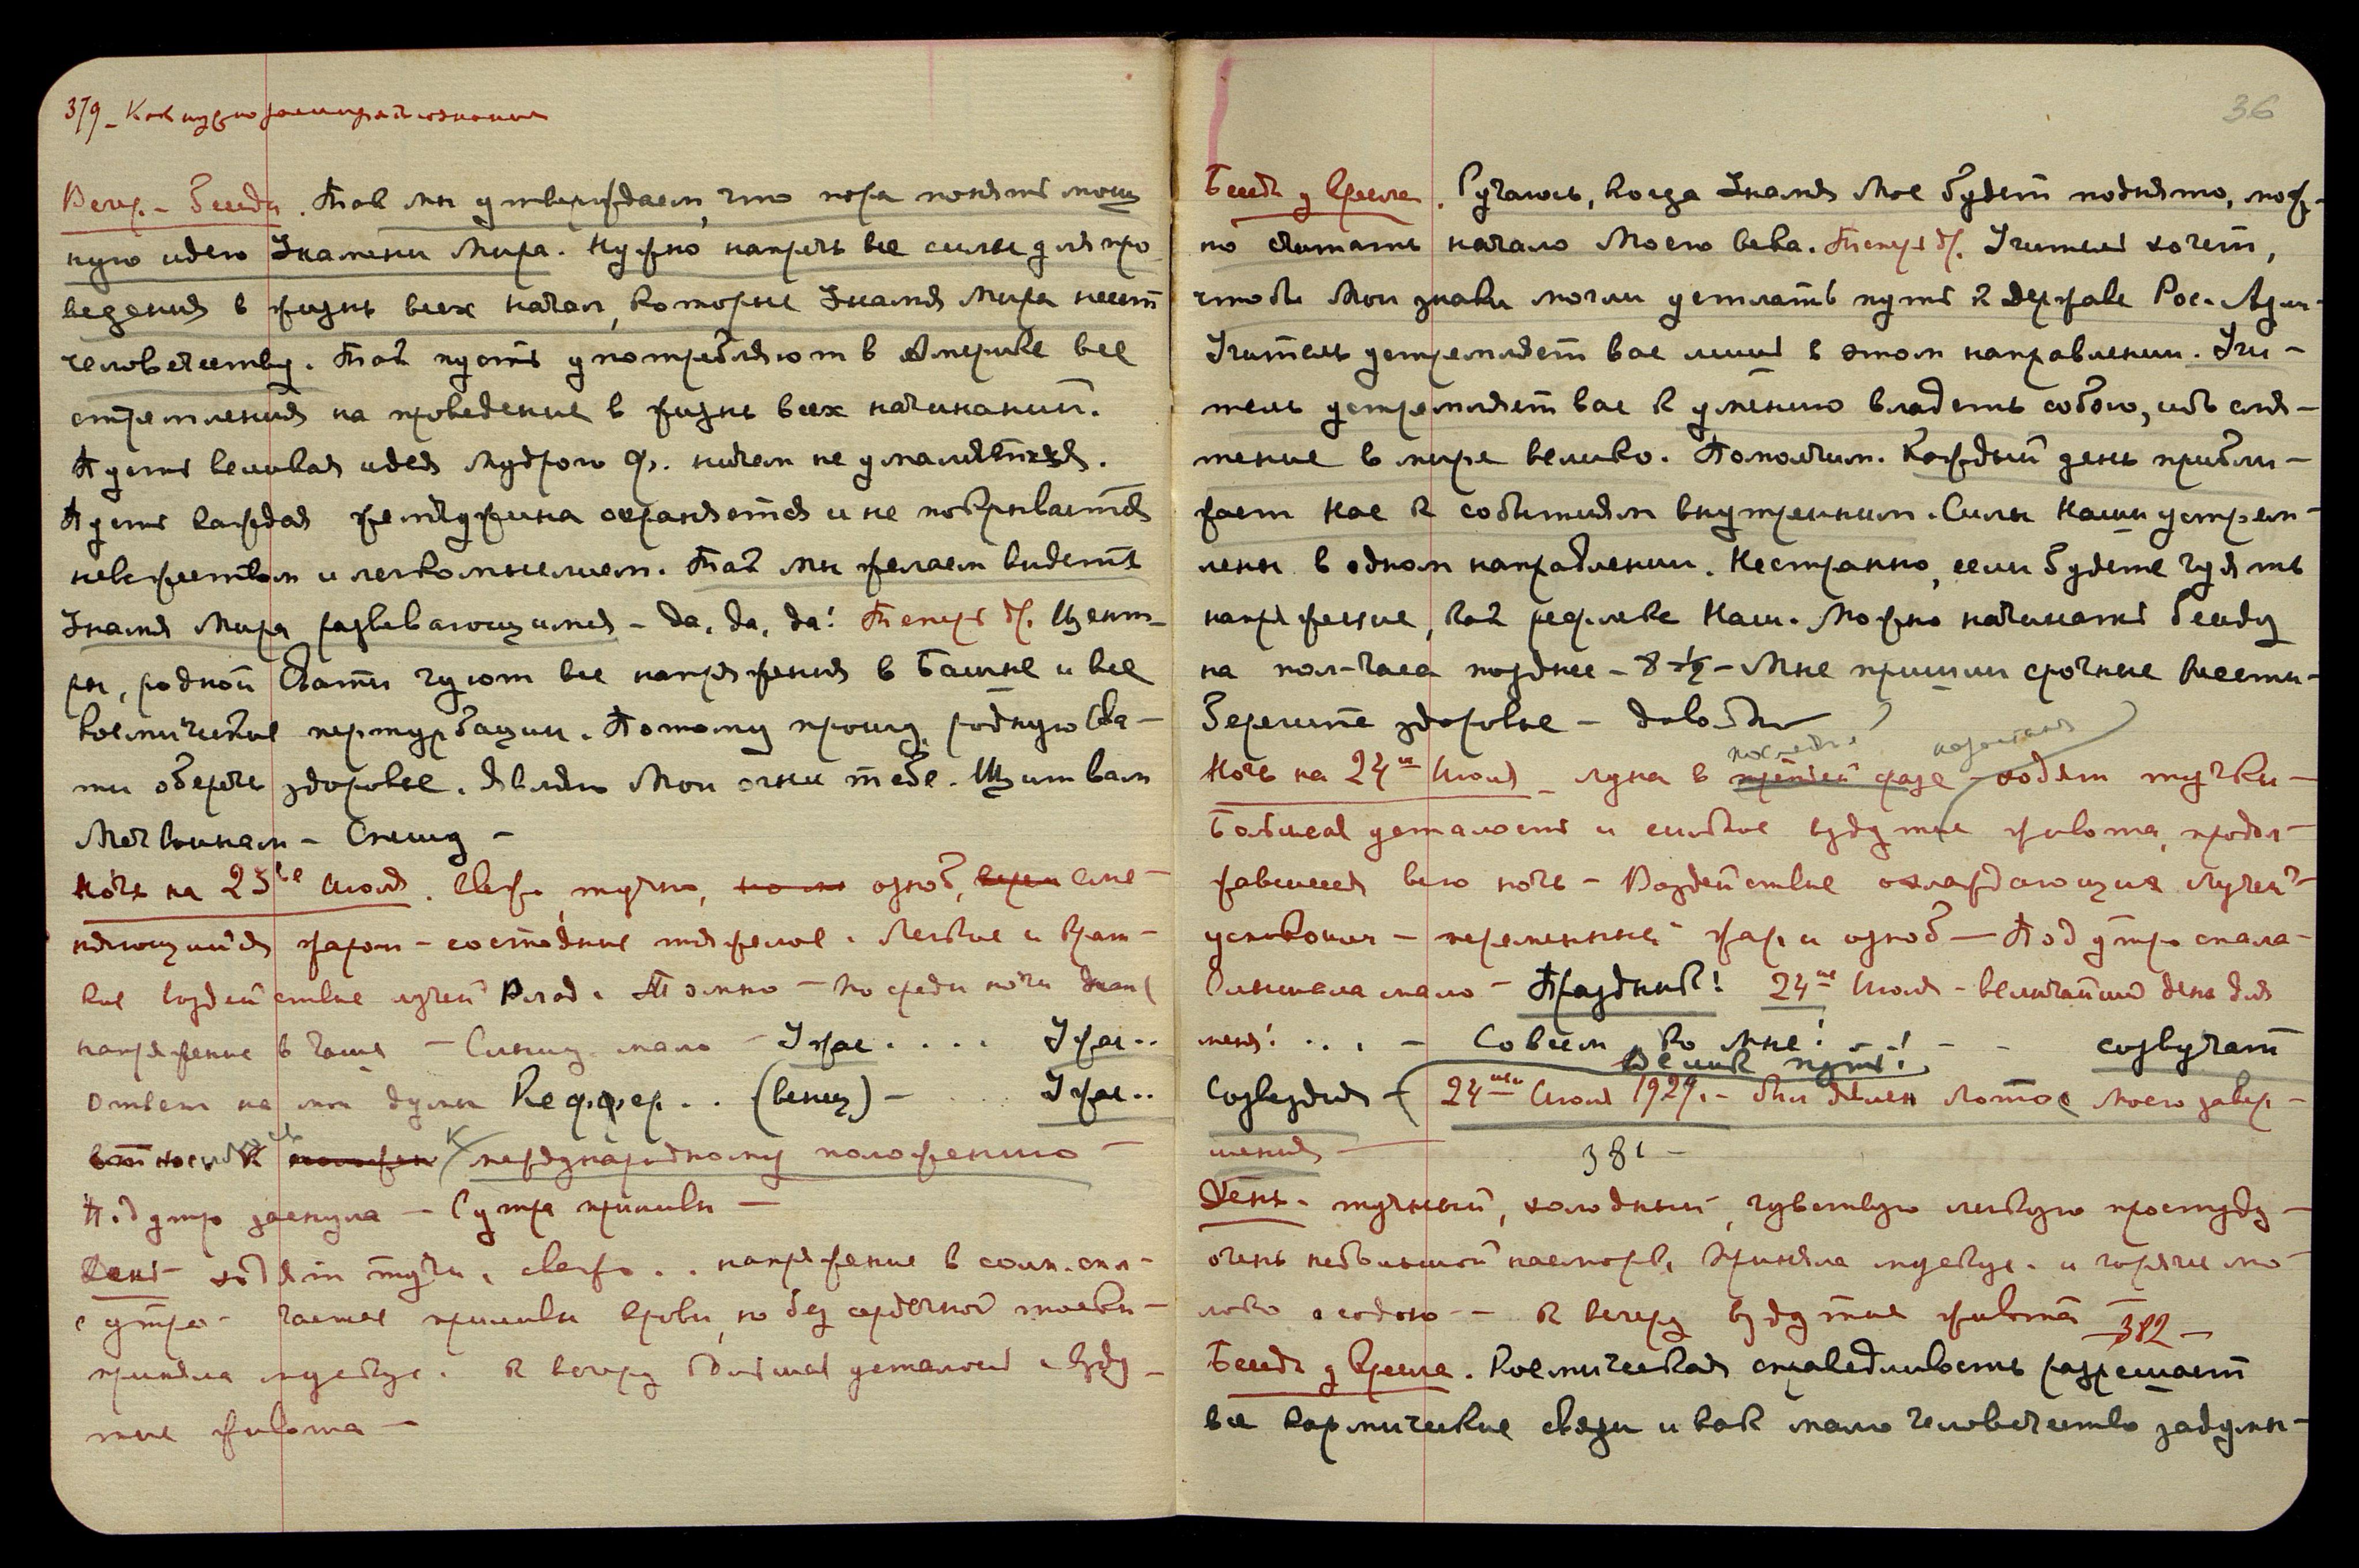 379 – Как нужно расширять сознание
Вечер. – Беседа. Так мы утверждаем, что пора понять мощ
ную идею Знамени Мира. Нужно напречь все силы для про
ведения в жизнь всех начал, которые Знамя Мира несет
человечеству. Так пусть употребляют в Америке все
стремления на проведение в жизнь всех начинаний.
Пусть великая идея Мудрого Ф. ничем не умаляется.
Пусть каждая жемчужина охраняется и не покрывается
невежеством и легкомыслием. Так мы желаем видеть
Знамя Мира развевающимся – да, да, да! Теперь др. Цент–
ры, родной Свати чуют все напряжения в Башне и все
космические пертурбации. Потому прошу родную Сва–
ти оберечь здоровье. Являю Мои огни тебе. Щит вам
Мечтыкам – Спешу –
Ночь на 23ье Июля. Свежо, тучно, озноб, сме–
няющийся жаром – состояние тяжелое. Легкие и крат–
кие воздействие лучей Влад. Томно – Посреди ночи
напряжение в чаше – Слышу мало – Ужас.... Ужас..
Ответ на мои думы Кеффер.. (венец) – .. Ужас..
в относит. К международному положению –
Под утро заснула – С утра приливы –
День – ходят тучи, свежо.. напряжение в солн. спл–
с утра – частые приливы крови, но без сердечной тоски –
приняла мускус. К вечеру большая усталость и взду–
тие живота –
36
Беседа у Кресла. Ручаюсь, когда Знамя Мое будет поднято, мож–
но считать начало Моего века. Теперь др. Учитель хочет,
чтобы Мои знаки могли устлать путь к Державе Рос. Азии–
Учитель устремляет вас лишь в этом направлении. Учи–
тель устремляет вас к умению владеть собою, ибо смя–
тение в мире велико. Помолчим. Каждый день прибли–
жает нас к событиям внутренним. Силы Наши устрем–
лены в одном направлении. Нестранно, если будете чуять
напряжение, как рефлекс Наш. Можно начинать беседу
на пол-часа позднее – 8 ½ – Мне пришли срочные вести–
Берегите здоровье – довольно
последн. нарастания
Ночь на 24ое Июля – луна в третьей фазе – ходят тучки –
Большая усталость и сильное вздутие живота, продол–
жавшееся всю ночь – Воздействие охлаждающих лучей
успокоил – переменный жар и озноб – Под утро спала –
Слышала мало – Праздник! 24ое Июля – величайший день для
меня! ... – Совсем ко Мне! – ! – – созвучат
Велик путь!
Созвездия – 24ого Июля 1929г. – был явлен Лотос моего завер–
шения –
381 –
День – тучный, холодный, чувствую легкую простуду –
очень небольшой насморк, приняла мускус. и горячее мо–
локо с содою – – К вечеру вздутие живота
– 382 –
Беседа у Кресла. Космическая справедливость разрешает
все кармические связи и как мало человечество задумы–